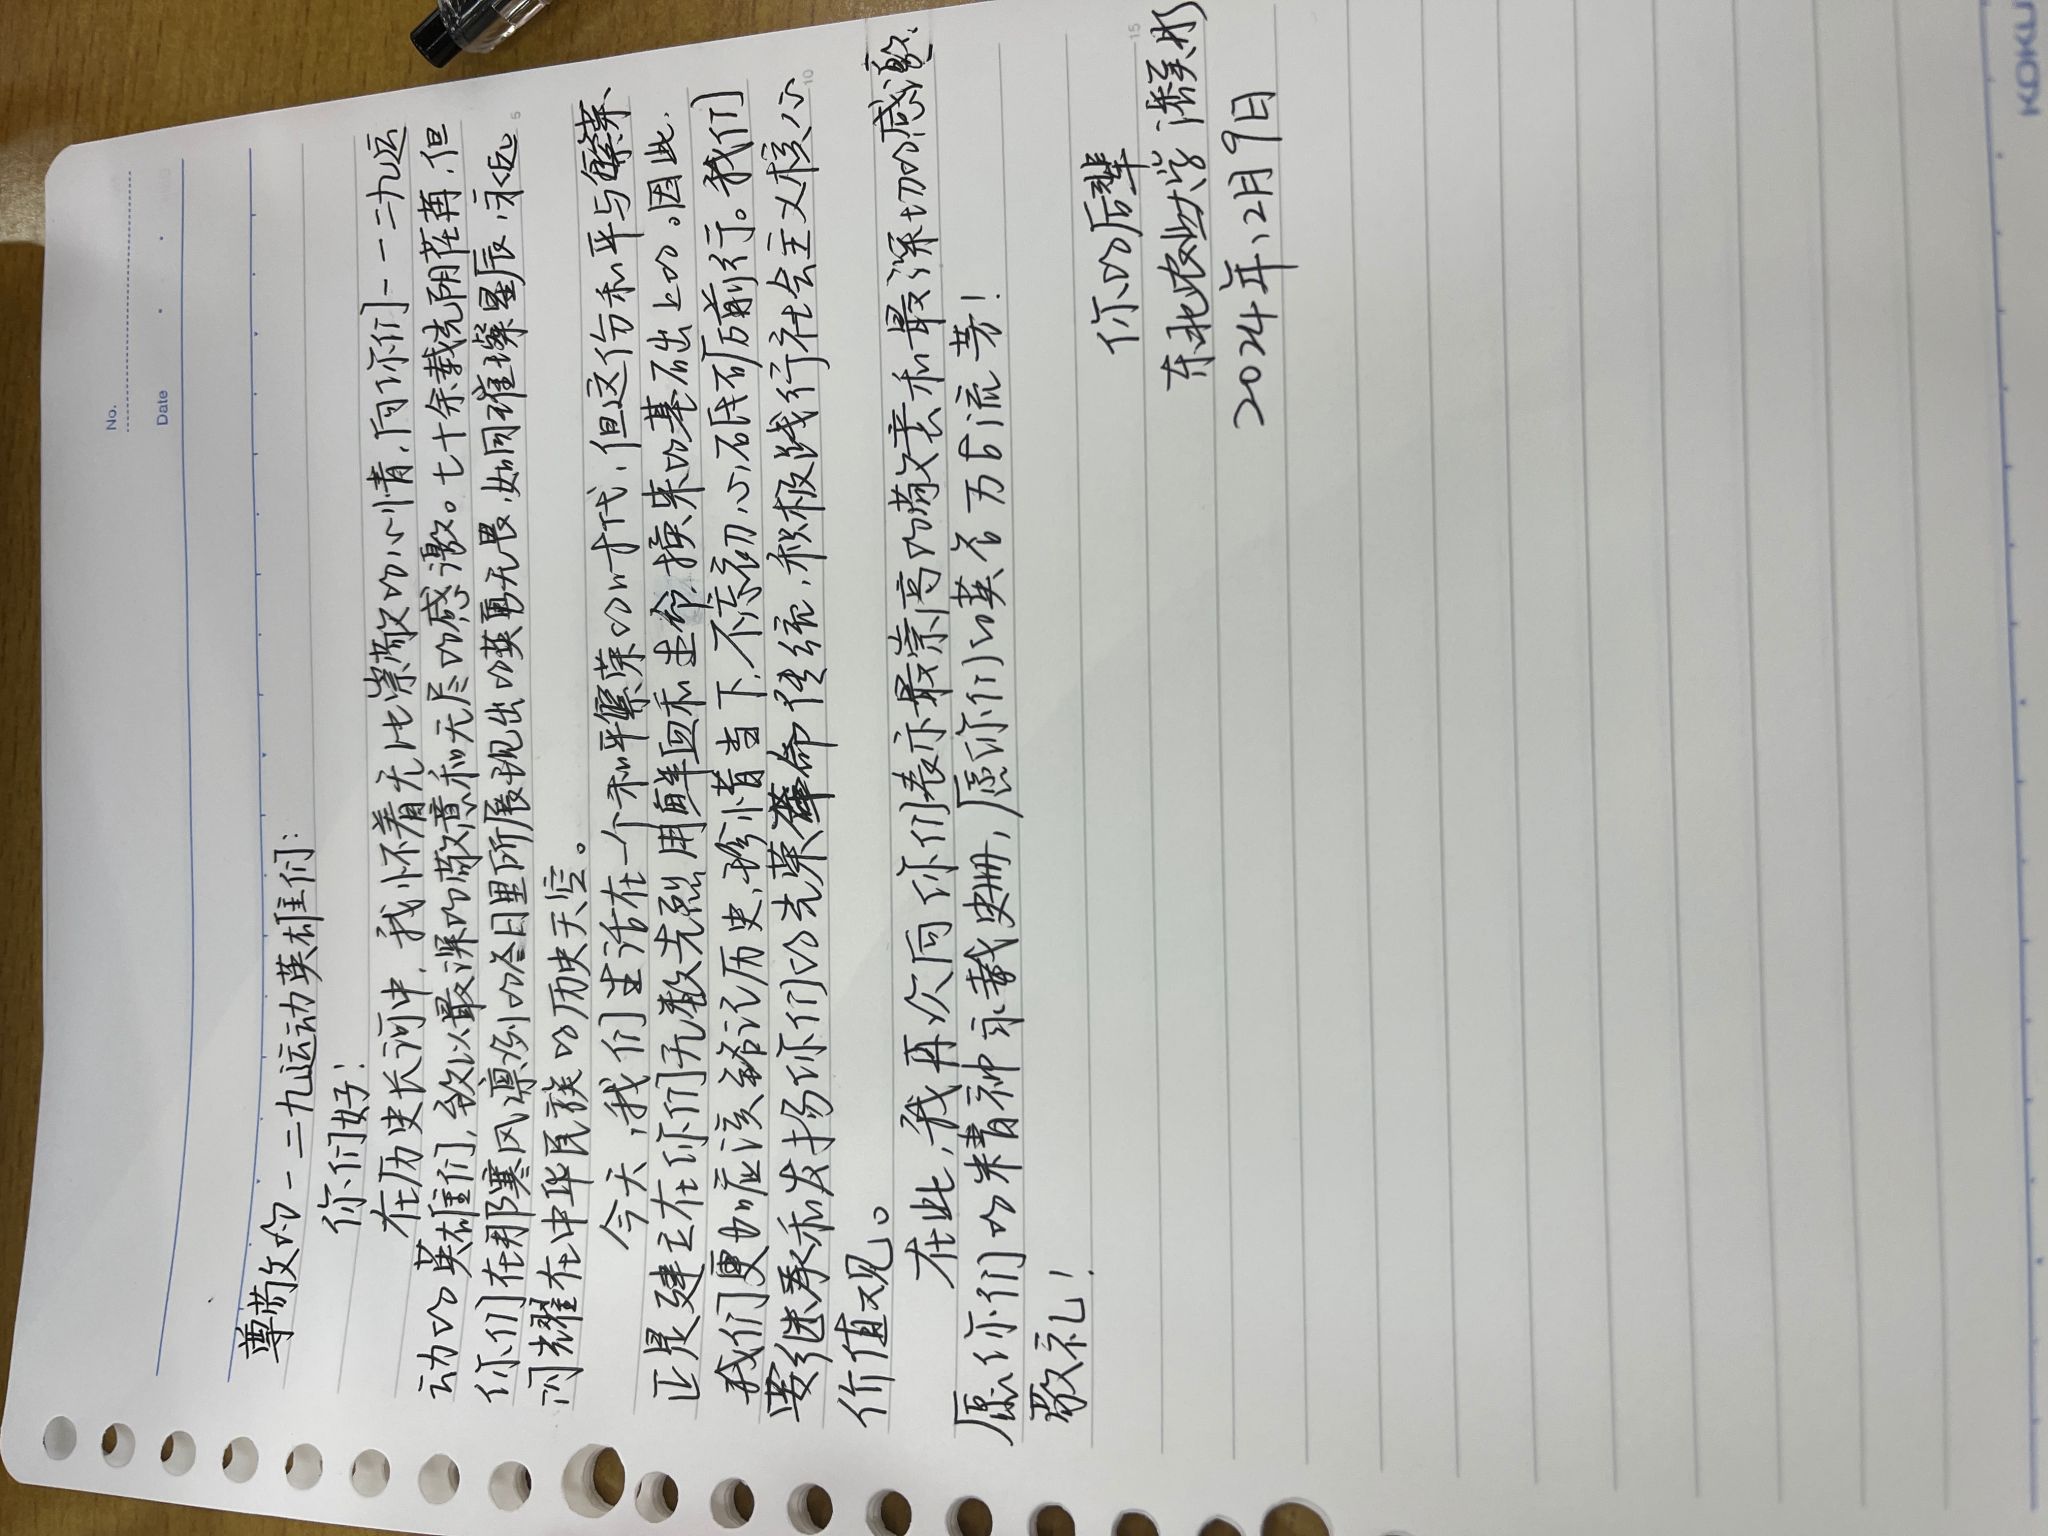 No.
Date
尊敬的一二九运动英雄们:
你们好!
在历史长河中,我怀着无比崇敬的心情,向你们一一二九运
动的英雄们,致以最深的敬意和无尽的感激。七十余载光阴荏苒,但
你们在那寒风凛冽的冬日里所展现出的英勇无畏,如同璀璨星辰,永远
闪耀在中华民族的历史天空。
今天,我们生活在一个和平繁荣的时代,但这份和平与繁荣、
正是建立在你们无数先烈用鲜血和生命换来的基础上的。因此,
我们更加应该铭记历史,珍惜当下,不忘初心,砥砺前行。我们
要继承和发扬你们的光荣革命传统,积极践行社会主义核心
价值观。
在此,我再次向你们表示最崇高的敬意和最深切的感激.
愿你们的精神永载史册,愿你们的英名万古流芳!
敬礼!
你的后辈
东北农业大学
2024年12月9日
5
10
15
KOKU